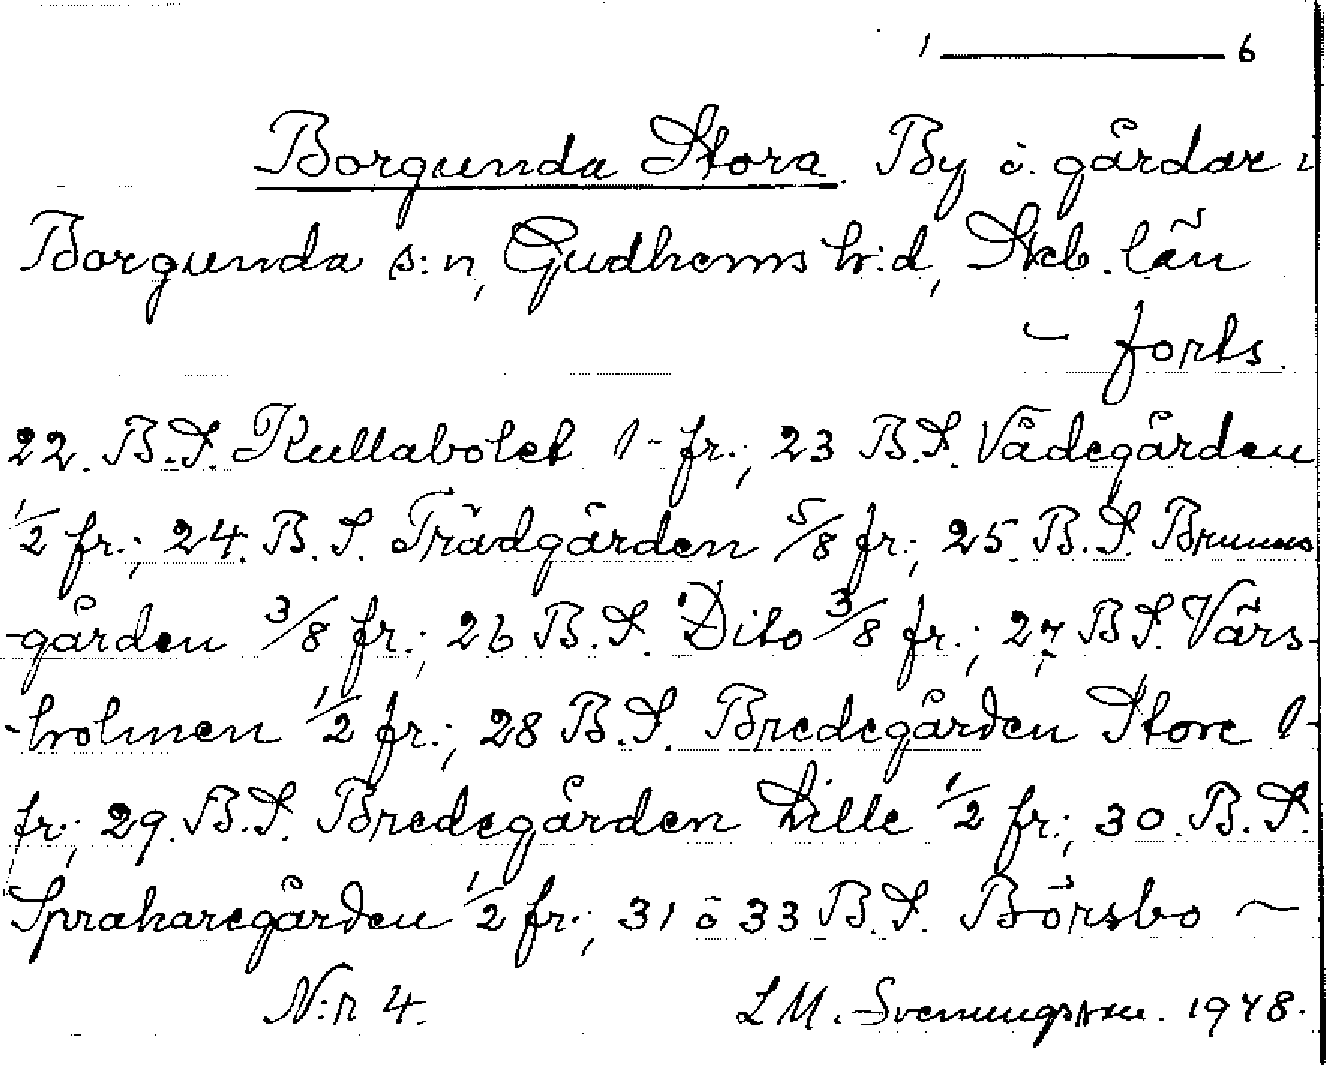 1 ——— 6
Borgunda Stora. By o. gårdar i
Borgunda s:n, Gudhems h:d, Skb. län
~ forts.
22. B.S. Kullabolet 1- fr.; 23 B.S. Vådegården
1/2 fr.; 24. B.S. Trädgården 5/8 fr.; 25. B.S. Brunns
-gården 3/8 fr.; 26 B.S. Dito 3/8 fr.; 27 B.S. Värs-
-holmen 1/2 fr.; 28 B.S. Bredegården Store 1-
fr.; 29. B.S. Bredegården Lille 1/2 fr.; 30. B.S.
Spraharegården 1/2 fr.; 31 o 33 B.S. Börsbo ~
N:r 4. LM. Svenungsson. 1948.